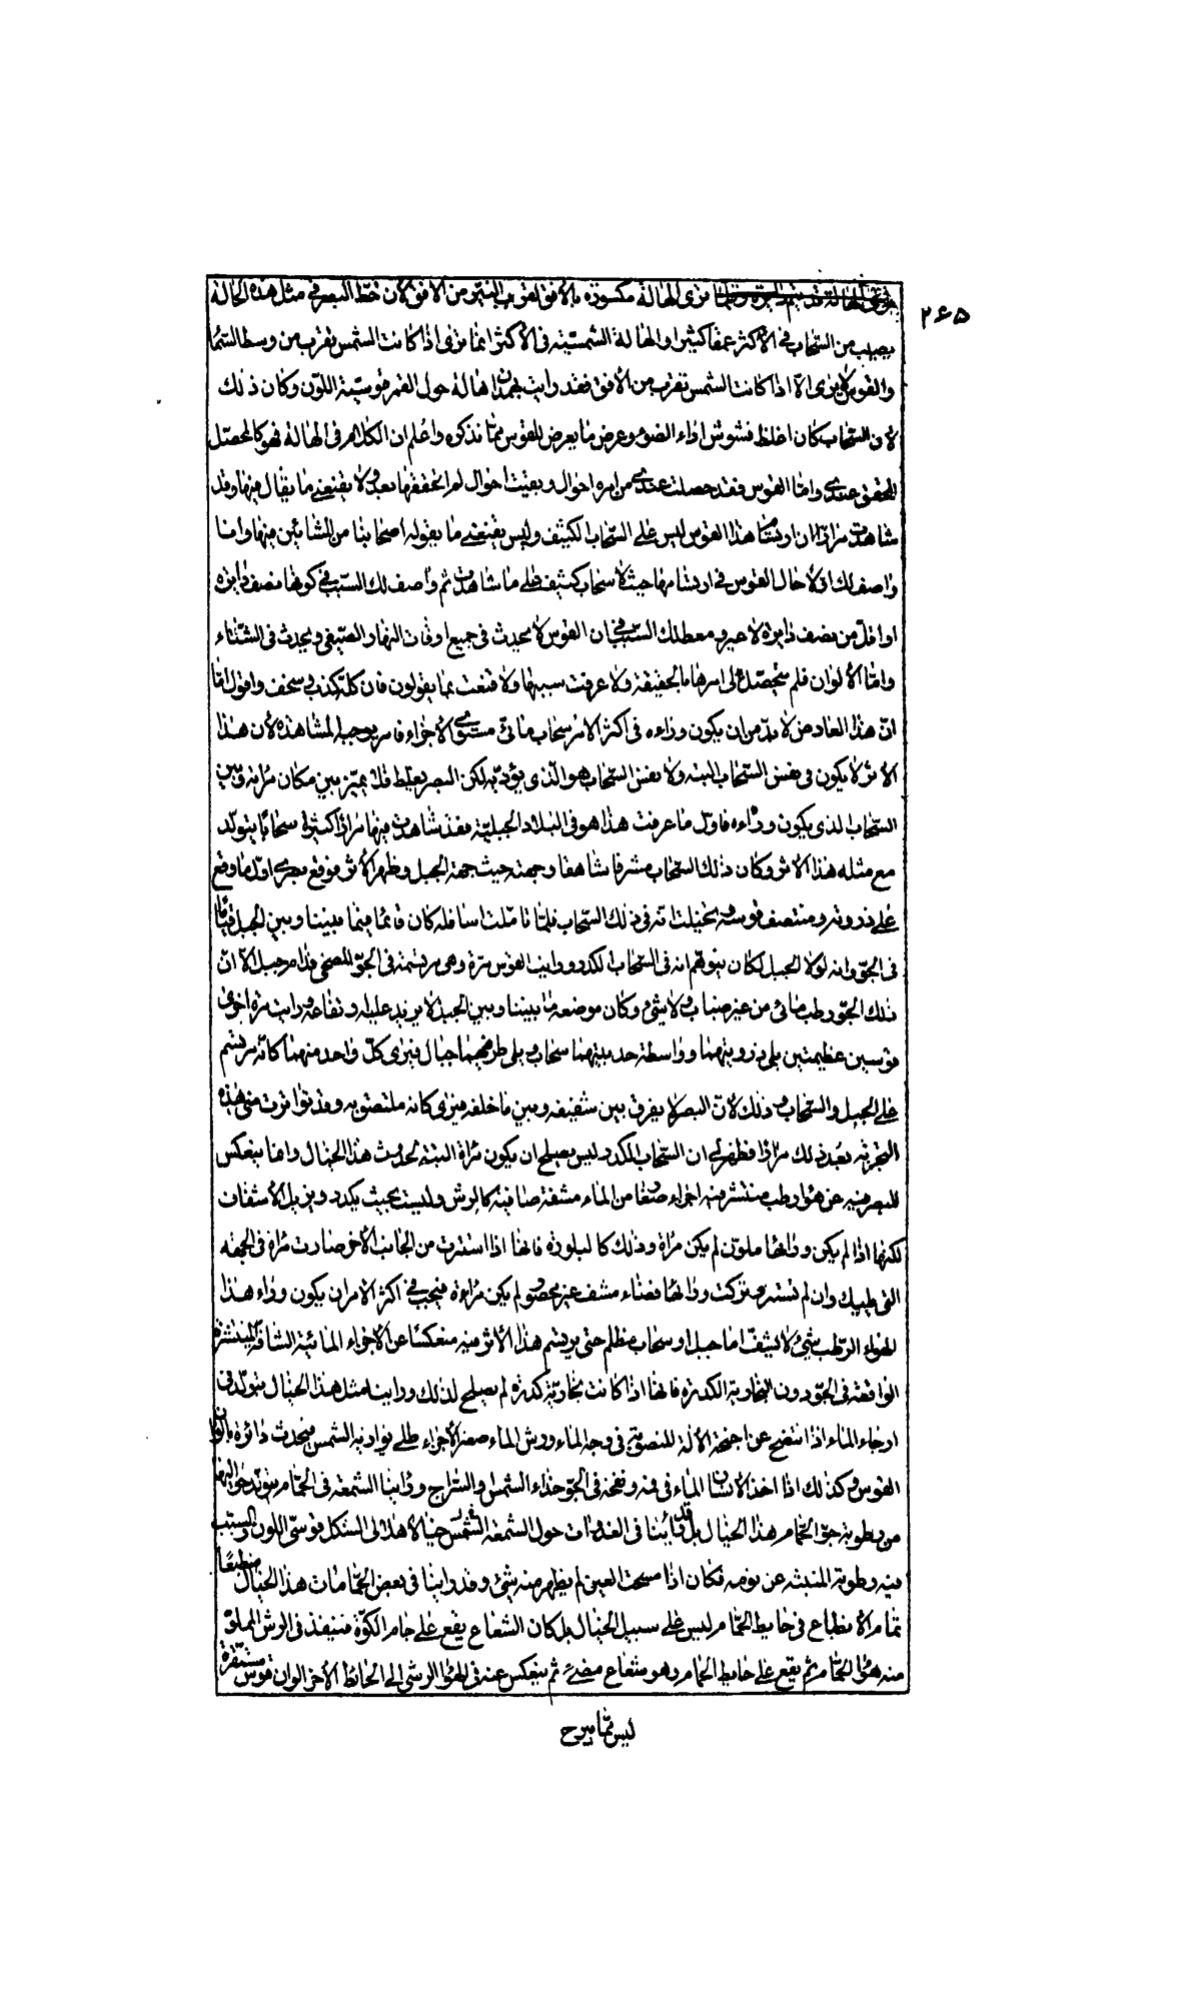 ۲۶۵
نرى الهالة مكسورة بالافق لقرب النير من الافق لان خط البصر فى مثل هذه الحالة
يصيب من السحاب فى الاكثر عمقا كثيرا والهالة الشمسية فى الاكثر انما ترى اذا كانت الشمس تقرب من وسط السماء
والقوس لا يرى الا اذا كانت الشمس تقرب من الافق فقد رايت بهمدان هالة حول القمر قوسية اللون وكان ذلك
لان السحاب كان اغلظ فشوش اداء الضوء وعرض ما يعرض للقوس مما نذكره واعلم ان الكلام فى الهالة فهو كالمحصل
المحقق عندى واما القوس فقد حصلت عندى من امره احوال وبقيت احوال لم اتحققها بعد ولا يقنعنى ما يقال فيها وقد
شاهدت مرارا ان ارتسام هذا القوس ليس على السحاب الكثيف وليس يقنعنى ما يقوله اصحابنا من المشائين فيها وانا
واصف لك اولا حال القوس فى ارتسامها حيث لا سحاب كثيف على ما شاهدت ثم واصف لك السبب فى كونها نصف دايرة
او اقل من نصف دايرة لا غير ومعطيك السبب فى ان القوس لا يحدث فى جميع اوقات النهار الصيفى ويحدث فى الشتاء
واما الالوان فلم يتحصل لى امرها بالحقيقة ولا عرفت سببها ولا قنعت بما يقولون فان كله كذب وسخف واقول اما
ان هذا العارض لا بد من ان يكون وراءه فى اكثر الامر سحاب مائى مستوى الاجزاء فامر يوجبه المشاهدة لان هذا
الاثر لا يكون فى نفس السحاب البتة ولا نفس السحاب هو الذى يؤديه لكن البصر يغلط فلا يميز بين مكان مراته وبين
السحاب الذى يكون وراءه فاول ما عرفت هذا هو فى البلاد الجبلية فقد شاهدت فيها مرارا كثيرة سحابا يتولد
مع مثله هذا الاثر وكان ذلك السحاب مشرفا شاهقا وجهته حيث جهة الجبل وظهر الاثر فوقع بصرى اول ما وقع
على ذروته ومنتصف قوسه فتخيلت انه فى ذلك السحاب فلما تاملت اسافله كان قائما فيما بيننا وبين الجبل قياما
فى الجو وانه لولا الجبل لكان يتوهم انه فى السحاب الكدر ورايت القوس مرة وهى مرتسمة فى الجو المصحى قدام جبل الا ان
ذلك الجو رطب مائى من غير ضباب ولا شئ وكان موضعه ما بيننا وبين الجبل لا يزيد عليه ارتفاعه ورايت مرة اخرى
قوسين عظيمتين يلى ذرويتهما وواسطة حدبيتهما سحاب ويلى طرفيهما جبال فيرى كل واحد منهما كانه مرتسم
على الجبل والسحاب وذلك لان البصر لا يفرق بين شفيفه وبين ما خلفه فيرى كانه ملتصق به وقد تواترت منى هذه
التجربة بعد ذلك مرارا فظهر لى ان السحاب الكدر ليس يصلح ان يكون مراة البتة لحدوث هذا الخيال وانما ينعكس
البصر فيه عن هواء رطب منتشر فيه اجزاء صغار من الماء مشفة صافية كالرش وليست بحيث يكدر ويزيل الاشفاف
لكنها اذا لم يكن وراءها ملون لم يكن مراة وذلك كالبلورة فانها اذا استترت من الجانب الاخر صارت مراة فى الجهة
التى يليك وان لم تستره وتركت وراءها فضاء مشف غير محصور لم يكن مراة فيجب فى اكثر الامر ان يكون وراء هذا
الهواء الرطب شئ لا يشف اما جبل او سحاب مظلم حتى يرتسم هذا الاثر فيه منعكسا عن الاجزاء المائية الشافة المنتشرة
الواقعة فى الجو دون البخارية الكدرة فانها اذا كانت بخارية كدرة لم يصلح لذلك وراينا مثل هذا الخيال يتولد فى
ارجاء الماء اذا انتضح عن اجنحة الالة المنصوبة فى وجه الماء ورش الماء صغير الاجزاء على يوازيه الشمس فيحدث دائرة بالوان
القوس وكذلك اذا اخذ الانسان الماء فى فيه ونفخه فى الجو حذاء الشمس والسراج وراينا الشمعة فى الحمام يتولد حواليها
من رطوبة جو الحمام هذا الخيال بل قد راينا فى الغدوات حول الشمعة خيالا هلالى الشكل قوسى اللون والسبب
فيه رطوبة المنبثة عن نومه فكان اذا مسحت العين لم يظهر منه شئ وقد راينا فى بعض الحمامات هذا الخيال منطبعا
تمام الانطباع فى حايط الحمام ليس على سبيل الخيال بل كان الشعاع يقع على جام الكوة فينفذ فى الرش المملو
منه هواء الحمام ثم يقع على حايط الحمام وهو شعاع مضئ ثم ينعكس عنه فى الهواء الرشى الى الحائط الاخر الوان قوس مستقرة
ليس مما يبرح